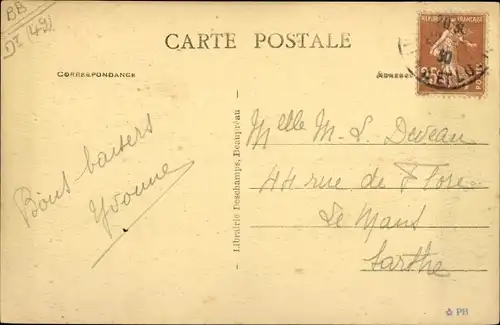 BB
Dt (49)
CARTE POSTALE
CORRESPONDANCE
ADRESSE
REPUBLIQUE FRANÇAISE
30
Bons baisers
Yvonne
Librairie Deschamps, Beaupréau
Melle M-L Deveau
44 rue de Flore
Le Mans
Sarthe
PB